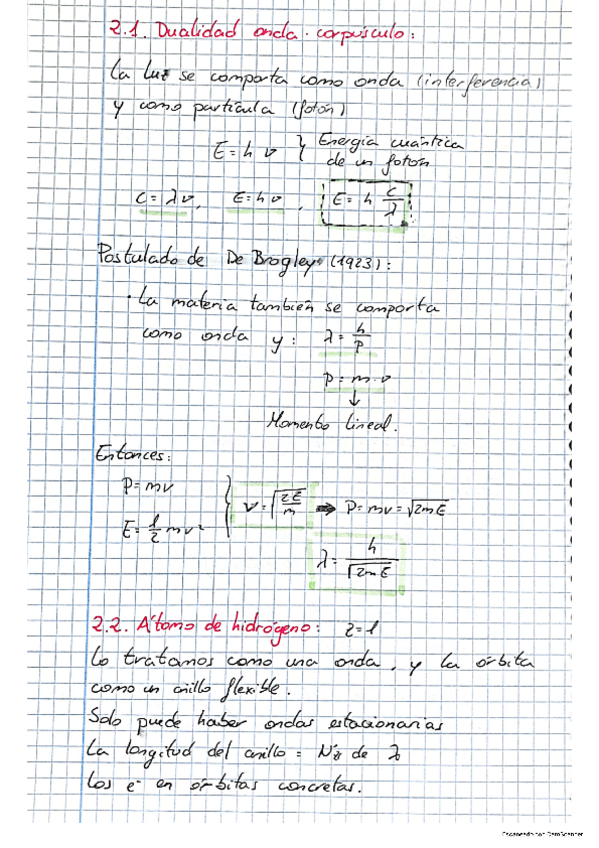 2.1. Dualidad onda-corpúsculo:
La luz se comporta como onda (interferencia)
y como partícula (fotón)
E = h ν } Energía cuántica
de un fotón
C = λν, E = hν, E = h C/λ
Postulado de De Brogleys (1923):
· La materia también se comporta
como onda y: λ = h/P
P = m·v
↓
Momento lineal.
Entonces:
P = mv
E = 1/2 mv² } v = √(2E/m) ⇒ P = mv = √2mE
λ = h/√2mE
2.2. Átomo de hidrógeno: z=1
Lo tratamos como una onda, y la órbita
como un anillo flexible.
Solo puede haber ondas estacionarias
La longitud del anillo = Nº de λ
Los e⁻ en órbitas concretas.
Escaneado con CamScanner